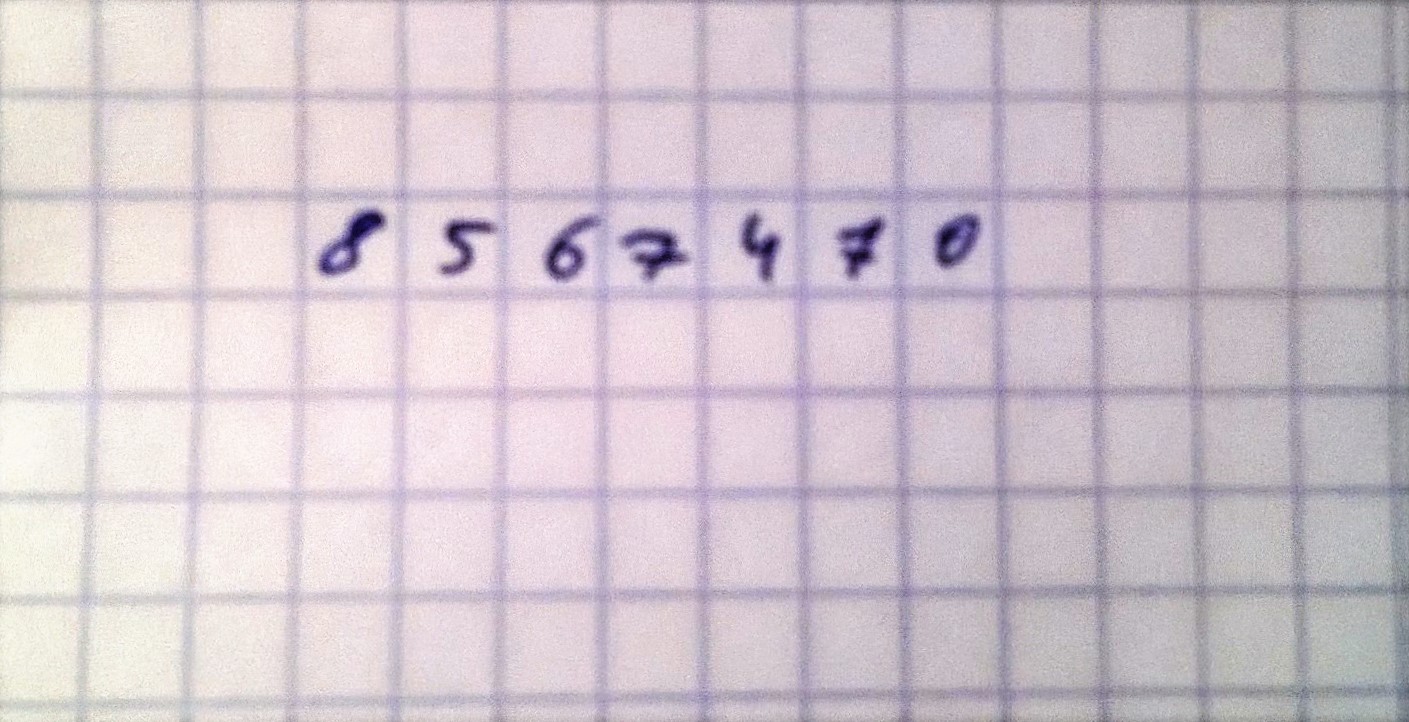 8 5 6 7 4 7 0